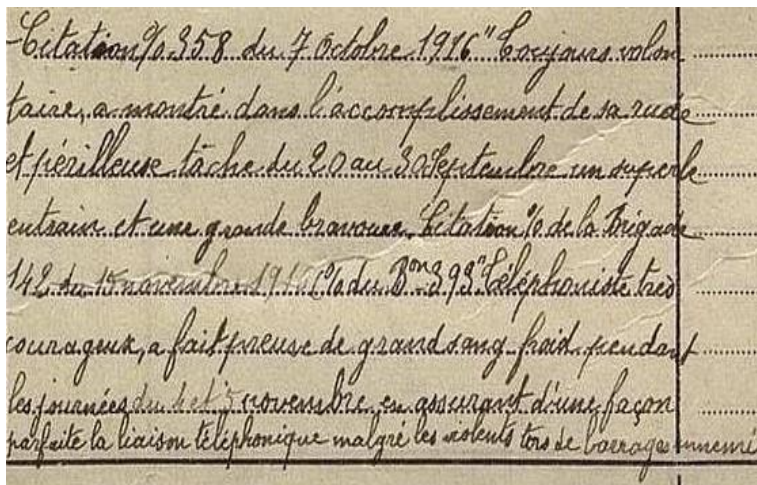 Citation % 358 du 7 Octobre 1916 "Toujours volon
taire, a montré dans l'accomplissement de sa rude
et périlleuse tâche du 20 au 30 Septembre un superbe
entrain et une grande bravoure. Citation % de la Brigade
142 du 15 novembre 1916 (% du Bon 393 "Téléphoniste très
courageux, a fait preuve de grand sang froid pendant
les journées du 4 et 5 novembre en assurant d'une façon
parfaite la liaison téléphonique malgré les violents tirs de barrages ennemi